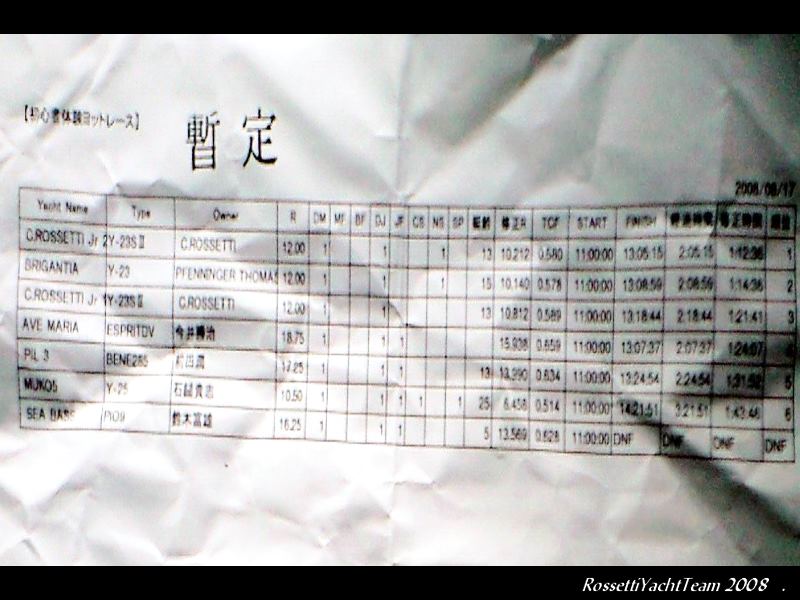 【初心者体験ヨットレース】
暫定
2008/08/17
Yacht Name Type Owner R DM MF BF DJ JF CS NS SP 船齢 修正R TCF START FINISH 経過時間 修正時間 順位
C.ROSSETTI Jr 2 Y-23SⅡ C.ROSSETTI 12.00 1 1 1 13 10.212 0.580 11:00:00 13:05:15 2:05:15 1:12:36 1
BRIGANTIA Y-23 PFENNINGER THOMAS 12.00 1 1 1 15 10.140 0.578 11:00:00 13:08:59 2:08:59 1:14:36 2
C.ROSSETTI Jr 1 Y-23SⅡ C.ROSSETTI 12.00 1 1 13 10.812 0.589 11:00:00 13:18:44 2:18:44 1:21:41 3
AVE MARIA ESPRITDV 今井勝治 18.75 1 1 1 0.659 11:00:00 13:07:37 2:07:37 1:24:07
PIL 3 BENE285 17.25 1 1 1 13 0.634 11:00:00 13:24:54 2:24:54 5
MUKO5 Y-25 石越貴志 10.50 1 1 1 1 1 25 0.514 11:00:00 14:21:51 3:21:51 6
SEA BASS PIO9 鈴木富雄 16.25 1 1 1 5 13.569 0.628 11:00:00 DNF DNF DNF DNF
RossettiYachtTeam 2008 .